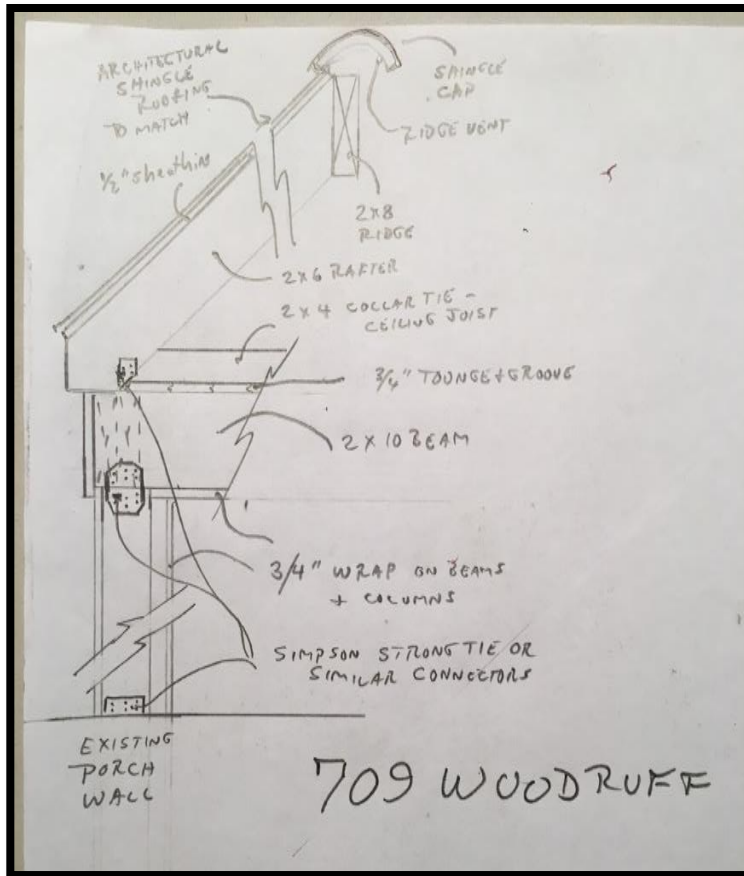 ARCHITECTURAL
SHINGLE
ROOFING
TO MATCH
SHINGLE
CAP
RIDGE VENT
1/2" sheathing
2x8
RIDGE
2x6 RAFTER
2x4 COLLAR TIE -
CEILING JOIST
3/4" TOUNGE + GROOVE
2x10 BEAM
3/4" WRAP ON BEAMS
+ COLUMNS
SIMPSON STRONG TIE OR
SIMILAR CONNECTORS
EXISTING
PORCH
WALL
709 WOODRUFF